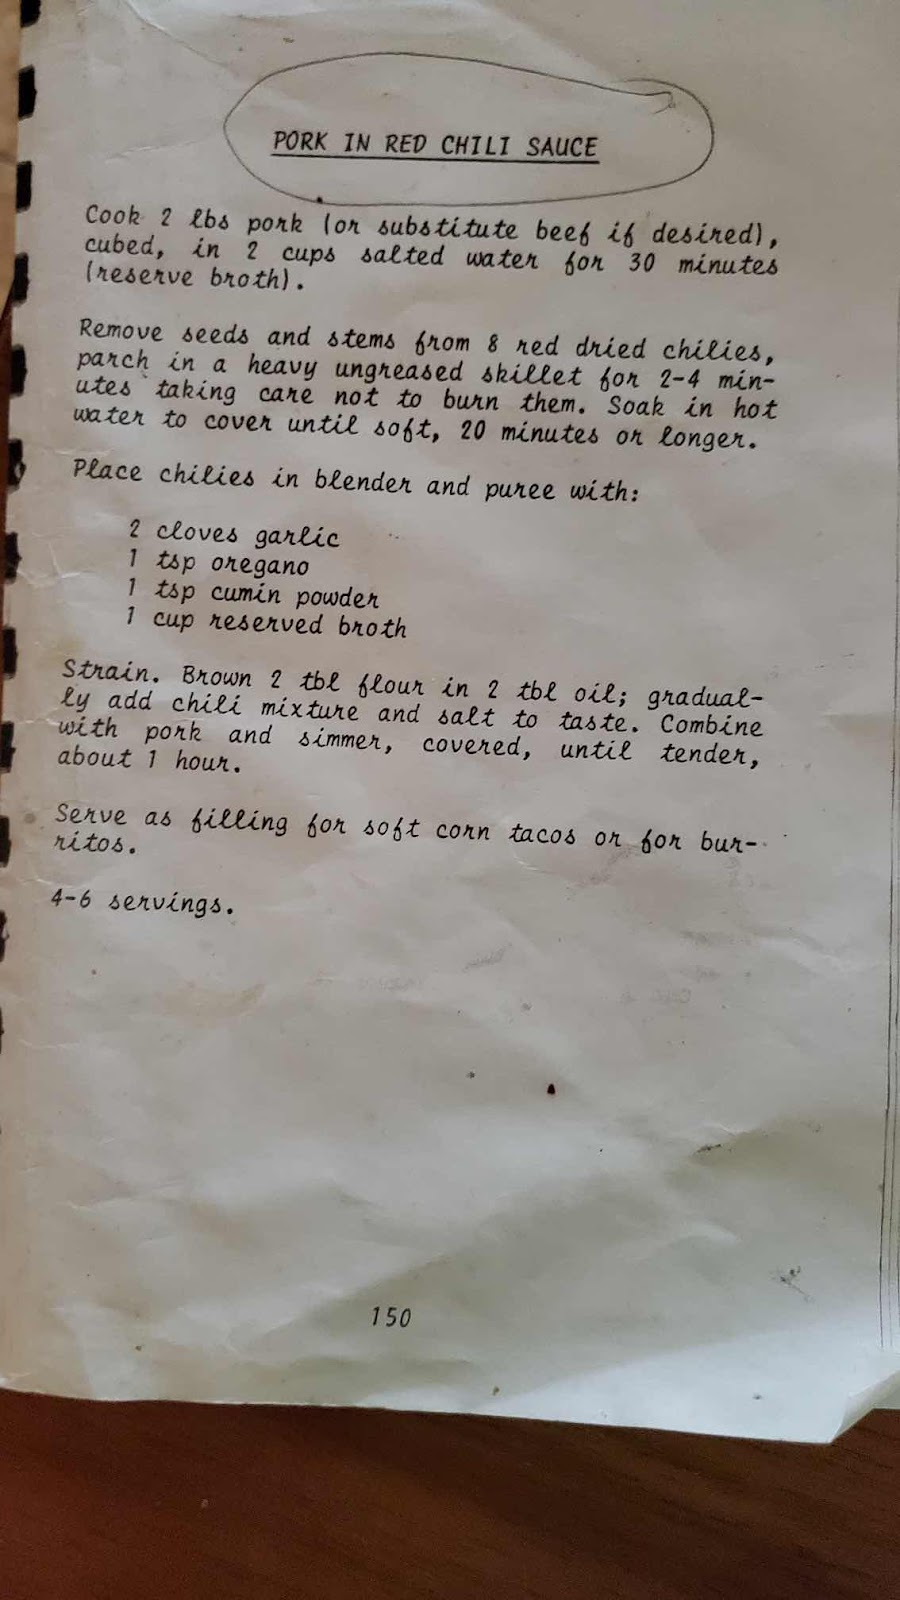 PORK IN RED CHILI SAUCE
Cook 2 lbs pork (or substitute beef if desired),
cubed, in 2 cups salted water for 30 minutes
(reserve broth).
Remove seeds and stems from 8 red dried chilies,
parch in a heavy ungreased skillet for 2-4 min-
utes taking care not to burn them. Soak in hot
water to cover until soft, 20 minutes or longer.
Place chilies in blender and puree with:
2 cloves garlic
1 tsp oregano
1 tsp cumin powder
1 cup reserved broth
Strain. Brown 2 tbl flour in 2 tbl oil; gradual-
ly add chili mixture and salt to taste. Combine
with pork and simmer, covered, until tender,
about 1 hour.
Serve as filling for soft corn tacos or for bur-
ritos.
4-6 servings.
150